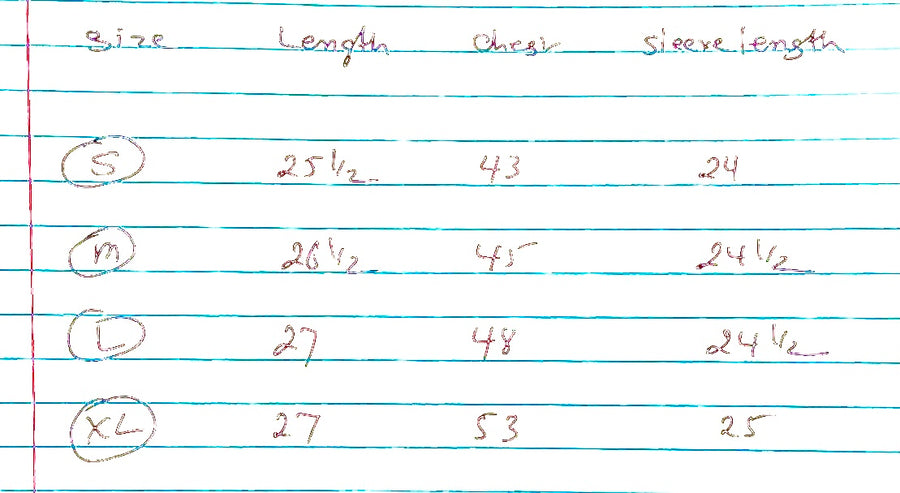 Size Length Chest Sleeve length
S 25 1/2 43 24
M 26 1/2 45 24 1/2
L 27 48 24 1/2
XL 27 53 25